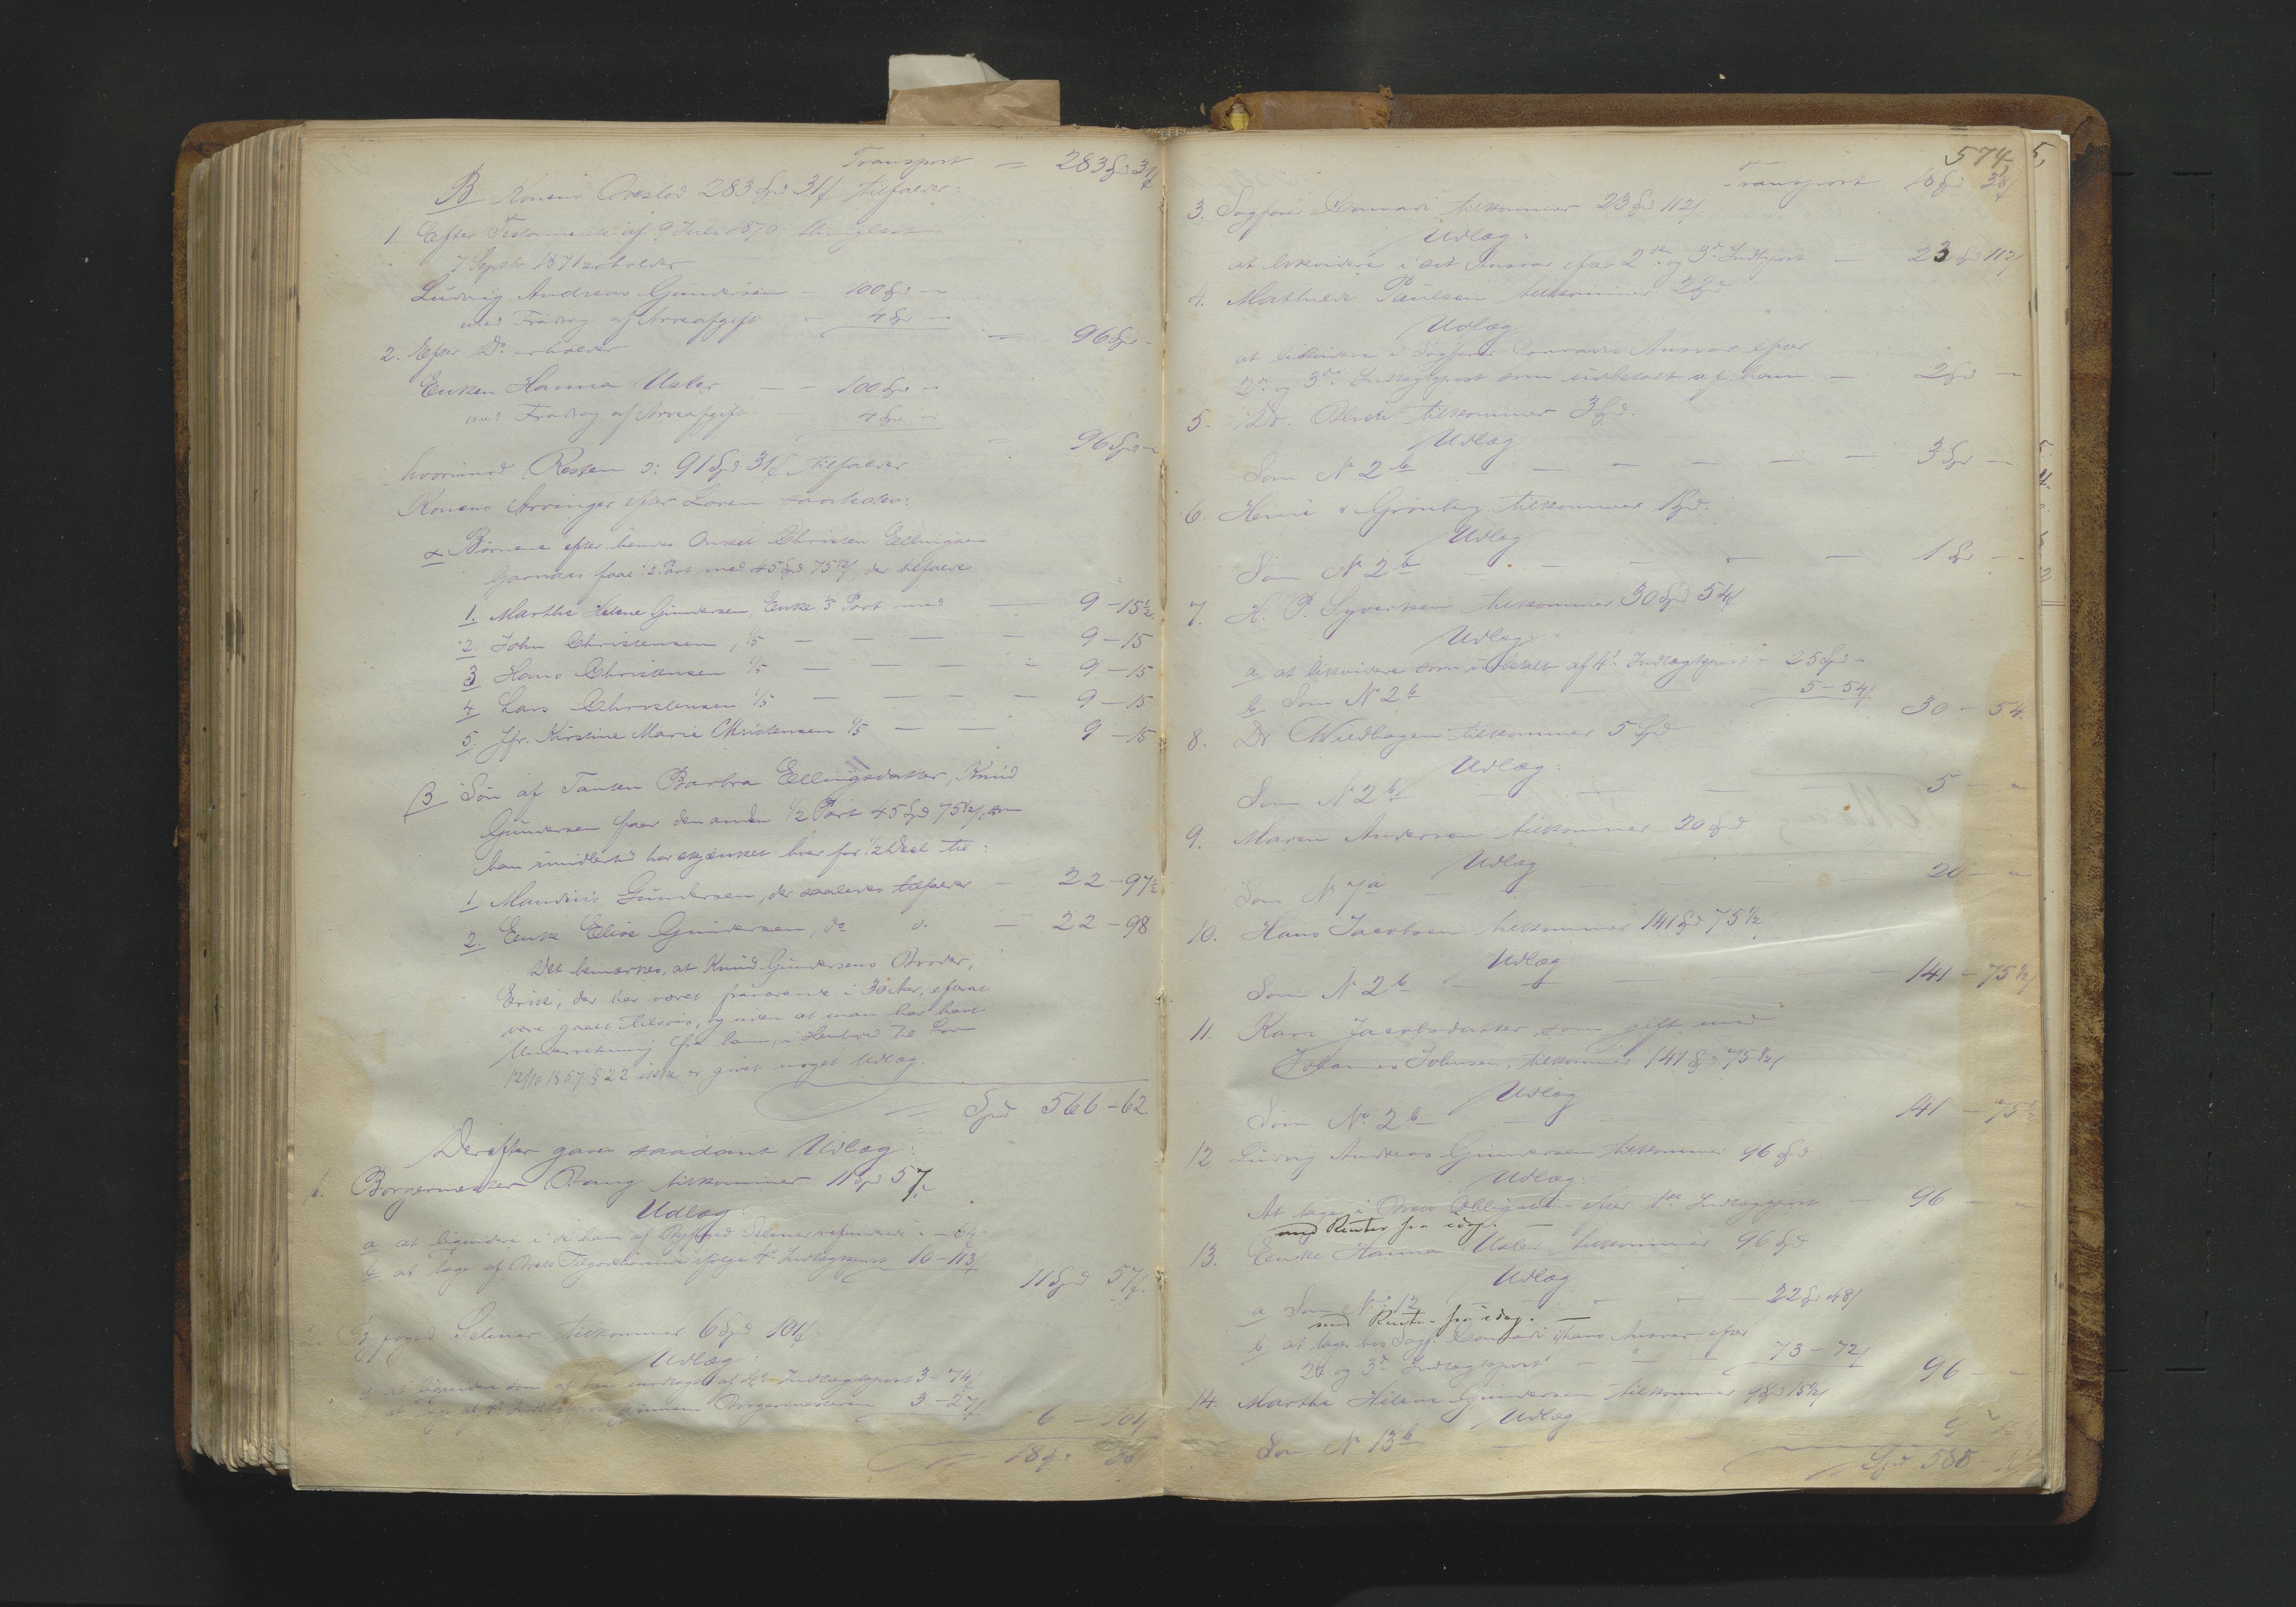 Transport = 283 Spd 31 ß
B Konens Arvelod 283 Spd 31 ß tilfalder:
1. Efter Testamente af 9 Juli 1870, thinglæst
7 Septbr 1871 erholder
Ludvig Andreas Gundersen - 100 Spd -
med Fradrag af Arveafgift - 4 Spd -
= 96 Spd -
2. Efter Do erholder
Enken Hanna Usler - - 100 Spd -
med Fradrag af Arveafgift 4 Spd -
96 Spd -
hvorimod Resten ɔ: 91 Spd 31 ß tilfalder
Konens Arvinger efter Loven saaledes:
α Børnene efter hendes Onkel Christen Ellingsen
Garnaas faae ½ Part med 45 Spd 75½ ß, der tilfalde
1. Marthe Helene Gundersen, Enke 1/5 Part med - 9 - 15½
2. John Christensen, 1/5 - - - - 9 - 15
3 Hans Christensen 1/5 - - - - 9 - 15
4 Lars Christensen 1/5 - - - - 9 - 15
5. Jfr. Kirstine Marie Christensen 1/5 - - 9 - 15
β Søn af Tanten Barbra Ellingsdatter, Knud
Gundersen faar den anden 1/2 Part 45 Spd 75½ ß, som
han imidlertid har skjænket hver for 1/2 Deel til:
1 Mauritz Gundersen, der saaledes tilfalder - 22 - 97½
2. Enke Elise Gundersen, do d. - 22 - 98
Det bemærkes, at Knud Gundersens Broder,
Erik, der har været fraværende i 30 Aar, efterat
være gaaet tilsøes, og uden at man har havt
Underretning fra ham, i Henhold til Lov
12/10 1857 § 22 ikke er givet noget Udlæg.
Spd 566 - 62.
Derefter gaves saadant Udlæg:
1. Borgermester Bang tilkommer 11 Spd 57 ß
Udlæg:
a at liquidere i de ham af Byfoged Selmer refunderede - - 64
b at tage af Boets Tilgodehavende ifølge 4de Indtægtspost 10 - 113 ß
11 Spd 57 ß.
2. Byfoged Selmer tilkommer 6 Spd 101 ß.
Udlæg:
a at liquidere som af ham modtaget af 4de Indtægtspost 3 - 74
b at tage af 4de Indtægtspost gjennem Borgermesteren 3 - 27 ß
6 - 101 ß
18 Spd 38 ß
574
Transport 18 Spd 38 ß
3. Sagfører Conradi tilkommer 23 Spd 112 ß
Udlæg:
at likvidere i sit Ansvar efter 2den og 3die Indtpost - 23 Spd 112 ß
4. Mathilde Paulsen tilkommer 2 Spd
Udlæg
at likvidere i Sagfører Conradis Ansvar efter
2den og 3die Indtægtspost som udbetalt af ham - 2 Spd -
5. Dr. tilkommer 3 Spd.
Udlæg
Som No 2 b - - - - - 3 Spd -
6. & Grønberg tilkommer 1 Spd.
Udlæg
Som No 2 b - - - - - 1 Spd -
7. H. P. Syvertsen tilkommer 30 Spd 54 ß
Udlæg:
a at likvidere som udbetalt af 4de Indtægtspost - 25 Spd -
b Som No 2 b - - 5 - 54 ß
30 - 54.
8. Dr. Wiedhagen tilkommer 5 Spd
Udlæg:
Som No 2 b - - - - 5 - "
9. Maren Andersen tilkommer 20 Spd
Udlæg
Som No 7 a - - - - 20 - "
10. Hans Jacobsen tilkommer 141 Spd 75 1/2
Udlæg
Som No 2 b - - - - 141 - 75 1/2 ß
11. Kari Jacobsdatter, som gift med
Johannes Johnsen, tilkommer 141 Spd 75 1/2 ß
Udlæg
Som No 2 b - - - 141 - 75 1/2
12 Ludvig Andreas Gundersen tilkommer 96 Spd
Udlæg:
At tage i Boets Obligation efter 1ste Indtægtspost - 96 - "
med Renter fra idag. -
13. Enke Hanna Usler tilkommer 96 Spd
Udlæg
a Som No 12 - - - - 22 Spd 48 ß
med Renter fra idag. -
b at tage hos Sagf. Conradi i hans Ansvar efter
2d og 3de Indtægtspost - - - 73 - 72 ß
96 - "
14. Marthe Helene Gundersen tilkommer 9 Spd 15½ ß
Udlæg
Som No 13 b -
Spd 588